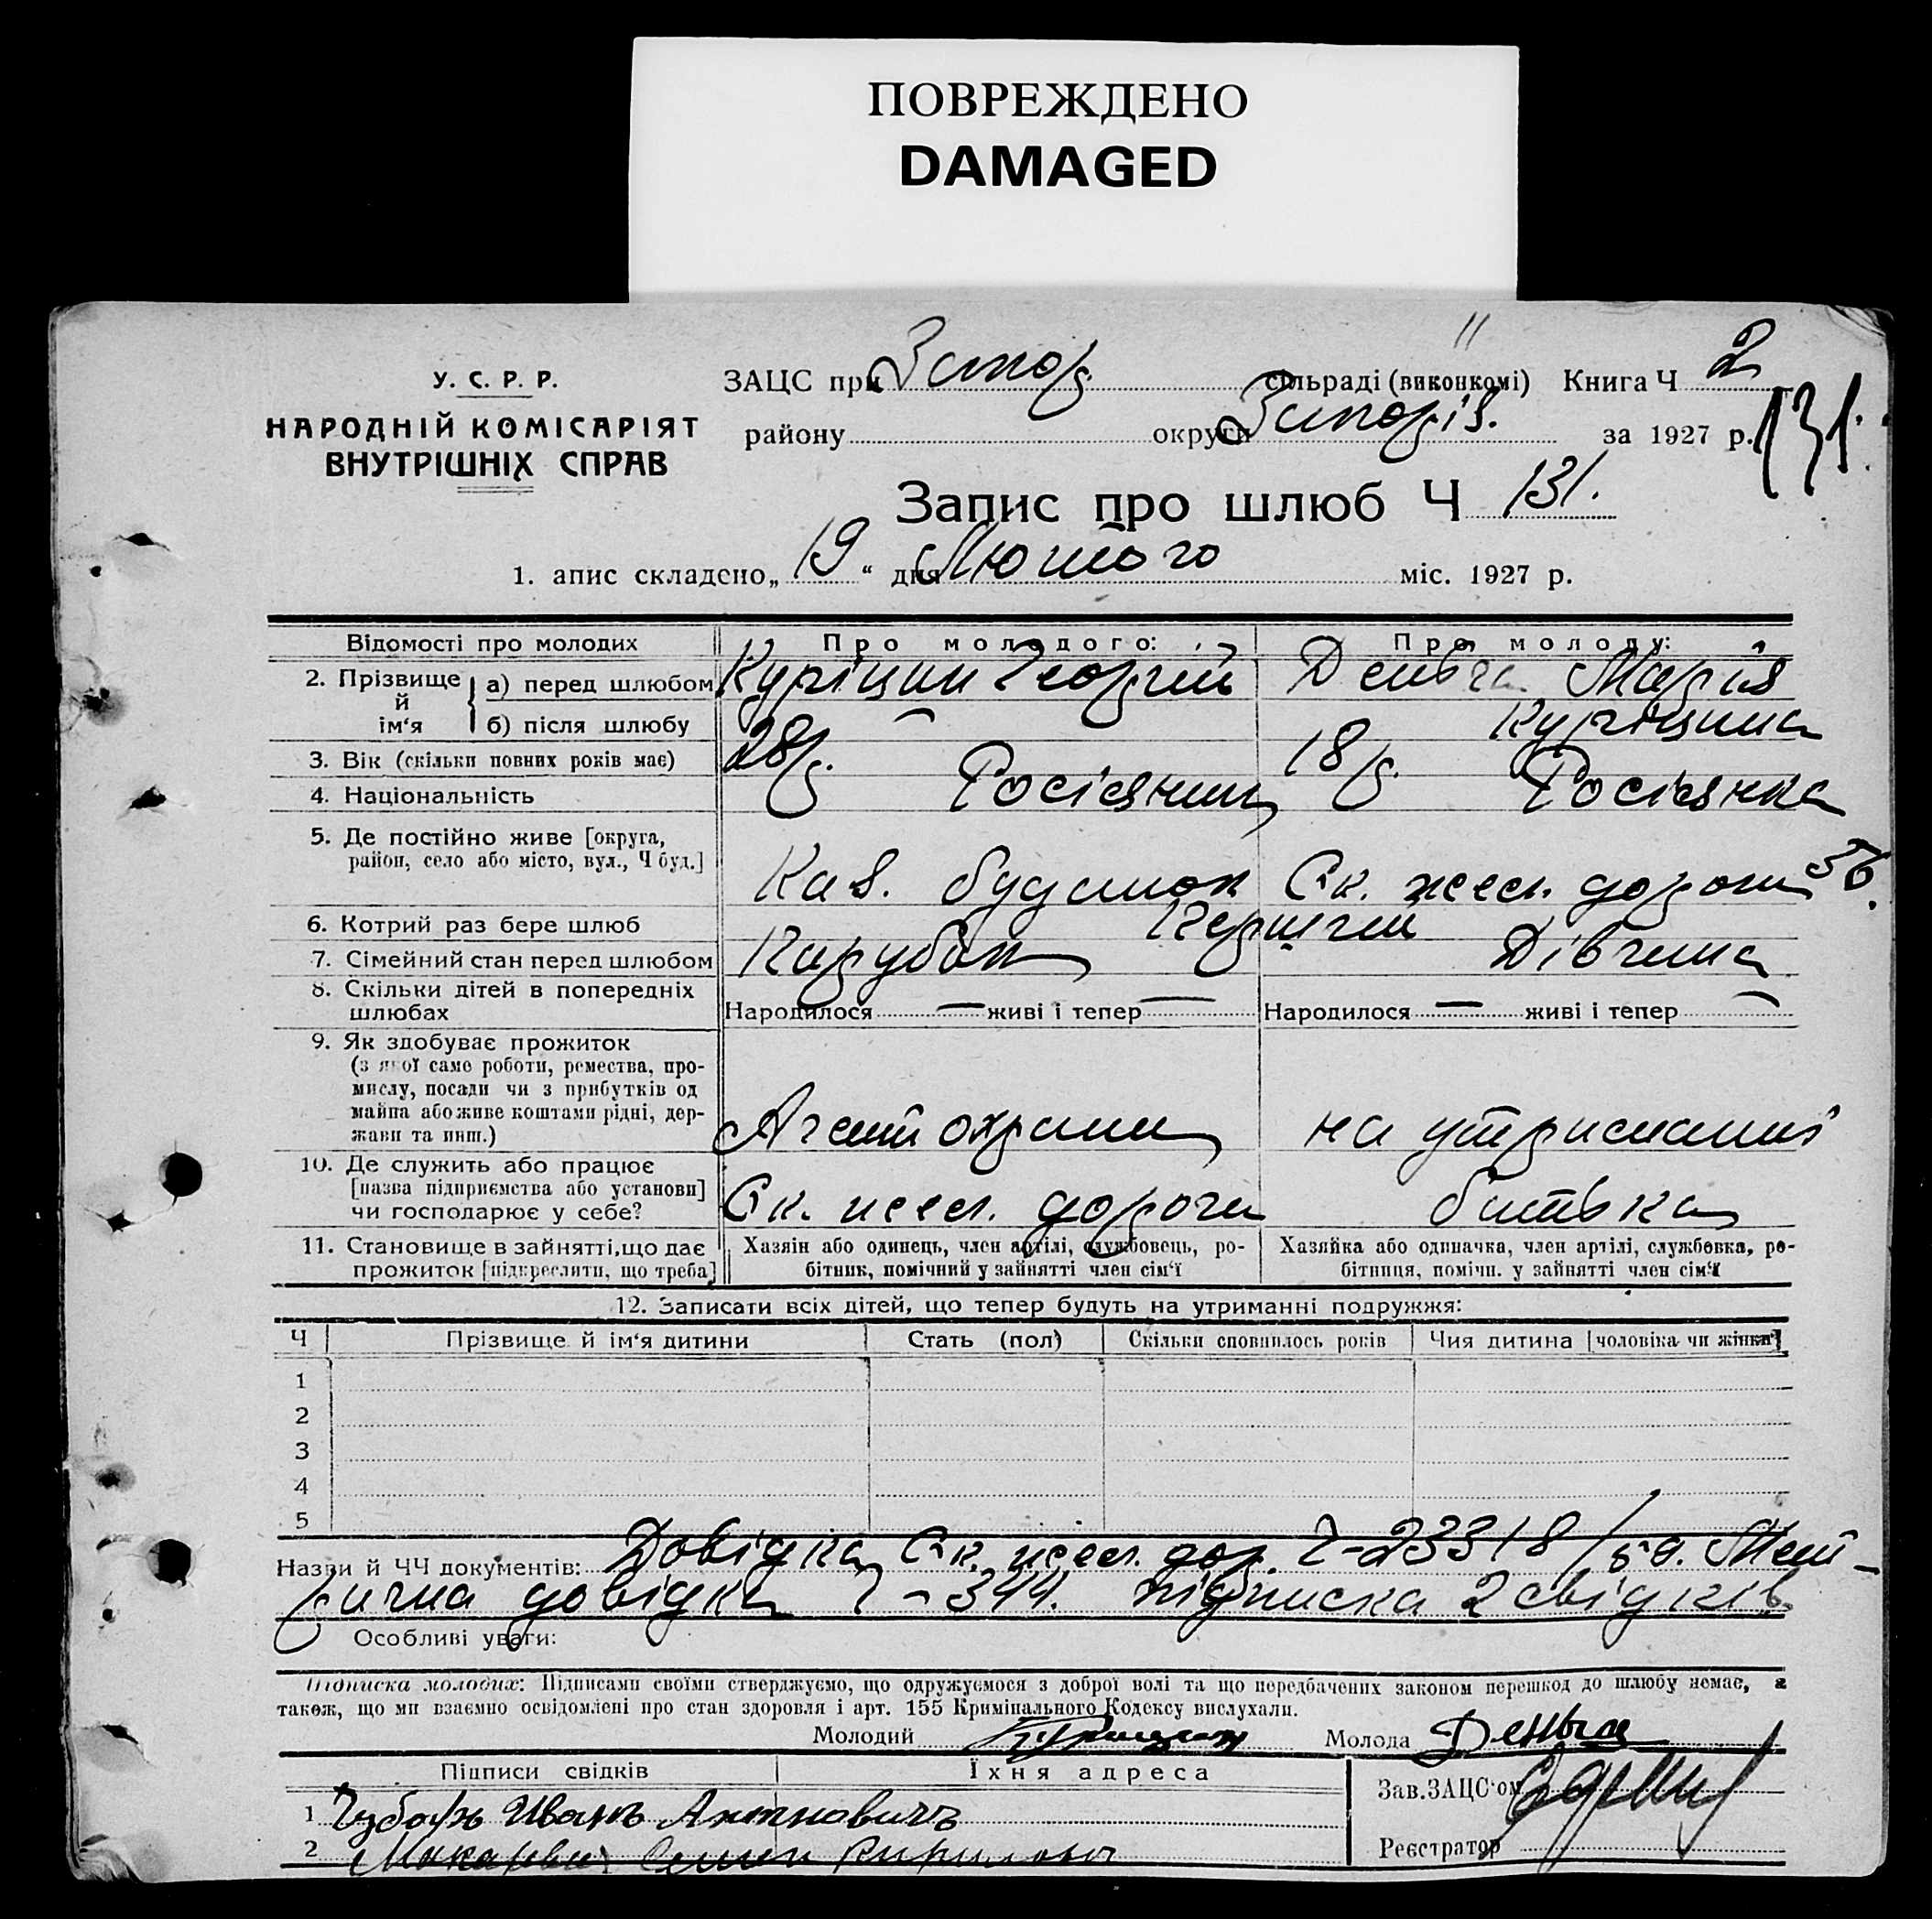 ПОВРЕЖДЕНО
DAMAGED
У. С. Р. Р.
НАРОДНІЙ КОМІСАРІЯТ
ВНУТРІШНІХ СПРАВ
ЗАЦС при Запор. сільраді (виконкомі) Книга Ч 2
району округи Запоріз. за 1927 р. 131.
Запис про шлюб Ч 131.
1. апис складено „ 19 “ дня Лютого міс. 1927 р.
Відомості про молодих Про молодого: Про молоду:
2. Прізвище й ім‘я а) перед шлюбом Куріцин Георгій Марія
б) після шлюбу Куріцина
3. Вік (скільки повних років має) 28 р. 18 р.
4. Національність Росіянин Росіянка
5. Де постійно живе [округа, район, село або місто, вул., Ч буд.] Каз. будинок Єк. жел. дороги 56.
6. Котрий раз бере шлюб Перший
7. Сімейний стан перед шлюбом Парубок Дівчина
8. Скільки дітей в попередніх шлюбах Народилося — живі і тепер — Народилося — живі і тепер —
9. Як здобуває прожиток
(з якої саме роботи, ремества, про-
мислу, посади чи з прибутків од
майна або живе коштами рідні, дер-
жави та инш.) Агент охрани на утриманні
10. Де служить або працює
[назва підприємства або установи]
чи господарює у себе? Єк. жел. дорога батька
11. Становище в зайнятті, що дає
прожиток [підкреслити, що треба]
Хазяїн або одинець, член артілі, службовець, ро-
бітник, помічний у зайнятті член сім‘ї
Хазяйка або одиначка, член артілі, службовка, ро-
бітниця, помічн. у зайнятті член сім‘ї
12. Записати всіх дітей, що тепер будуть на утриманні подружжя:
Ч Прізвище й ім‘я дитини Стать (пол) Скільки сповнилось років Чия дитина [чоловіка чи жінки]
1
2
3
4
5
Назви й ЧЧ документів: Довідка Єк. жел. дор. Ч-23318/ Мет-
рична довідка Ч-344. підписка 2 свідків
Особливі уваги:
Підписка молодих: Підписами своїми стверджуємо, що одружуємося з доброї волі та що передбачених законом перешкод до шлюбу немає, а
також, що ми взаємно освідомлені про стан здоровля і арт. 155 Кримінального Кодексу вислухали.
Молодий Молода
Підписи свідків Їхня адреса
Зав. ЗАЦС‘ом
1 Иванъ Антоновичъ
2
Реєстратор